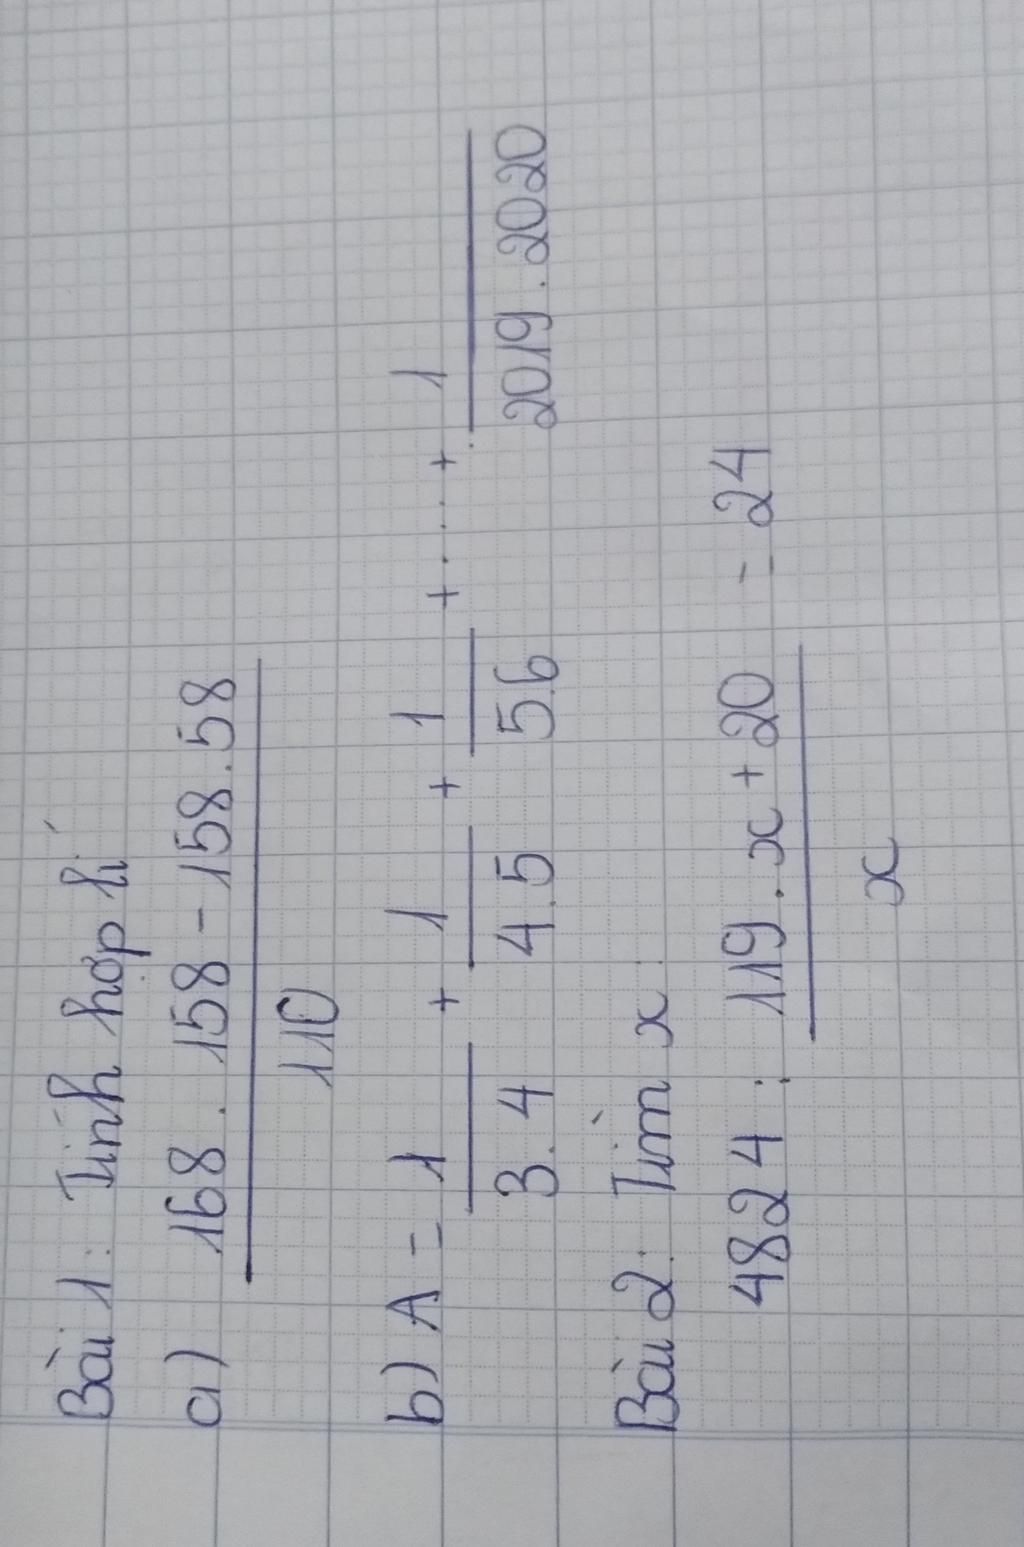 Bài 1: Tính hợp lí
a) 168 . 158 - 158 . 58
110
b) A = 1 + 1 + 1 + .... + 1
3 . 4 4 . 5 5.6 2019 . 2020
Bài 2: Tìm x:
4824 : 119 . x + 20 = 24
x